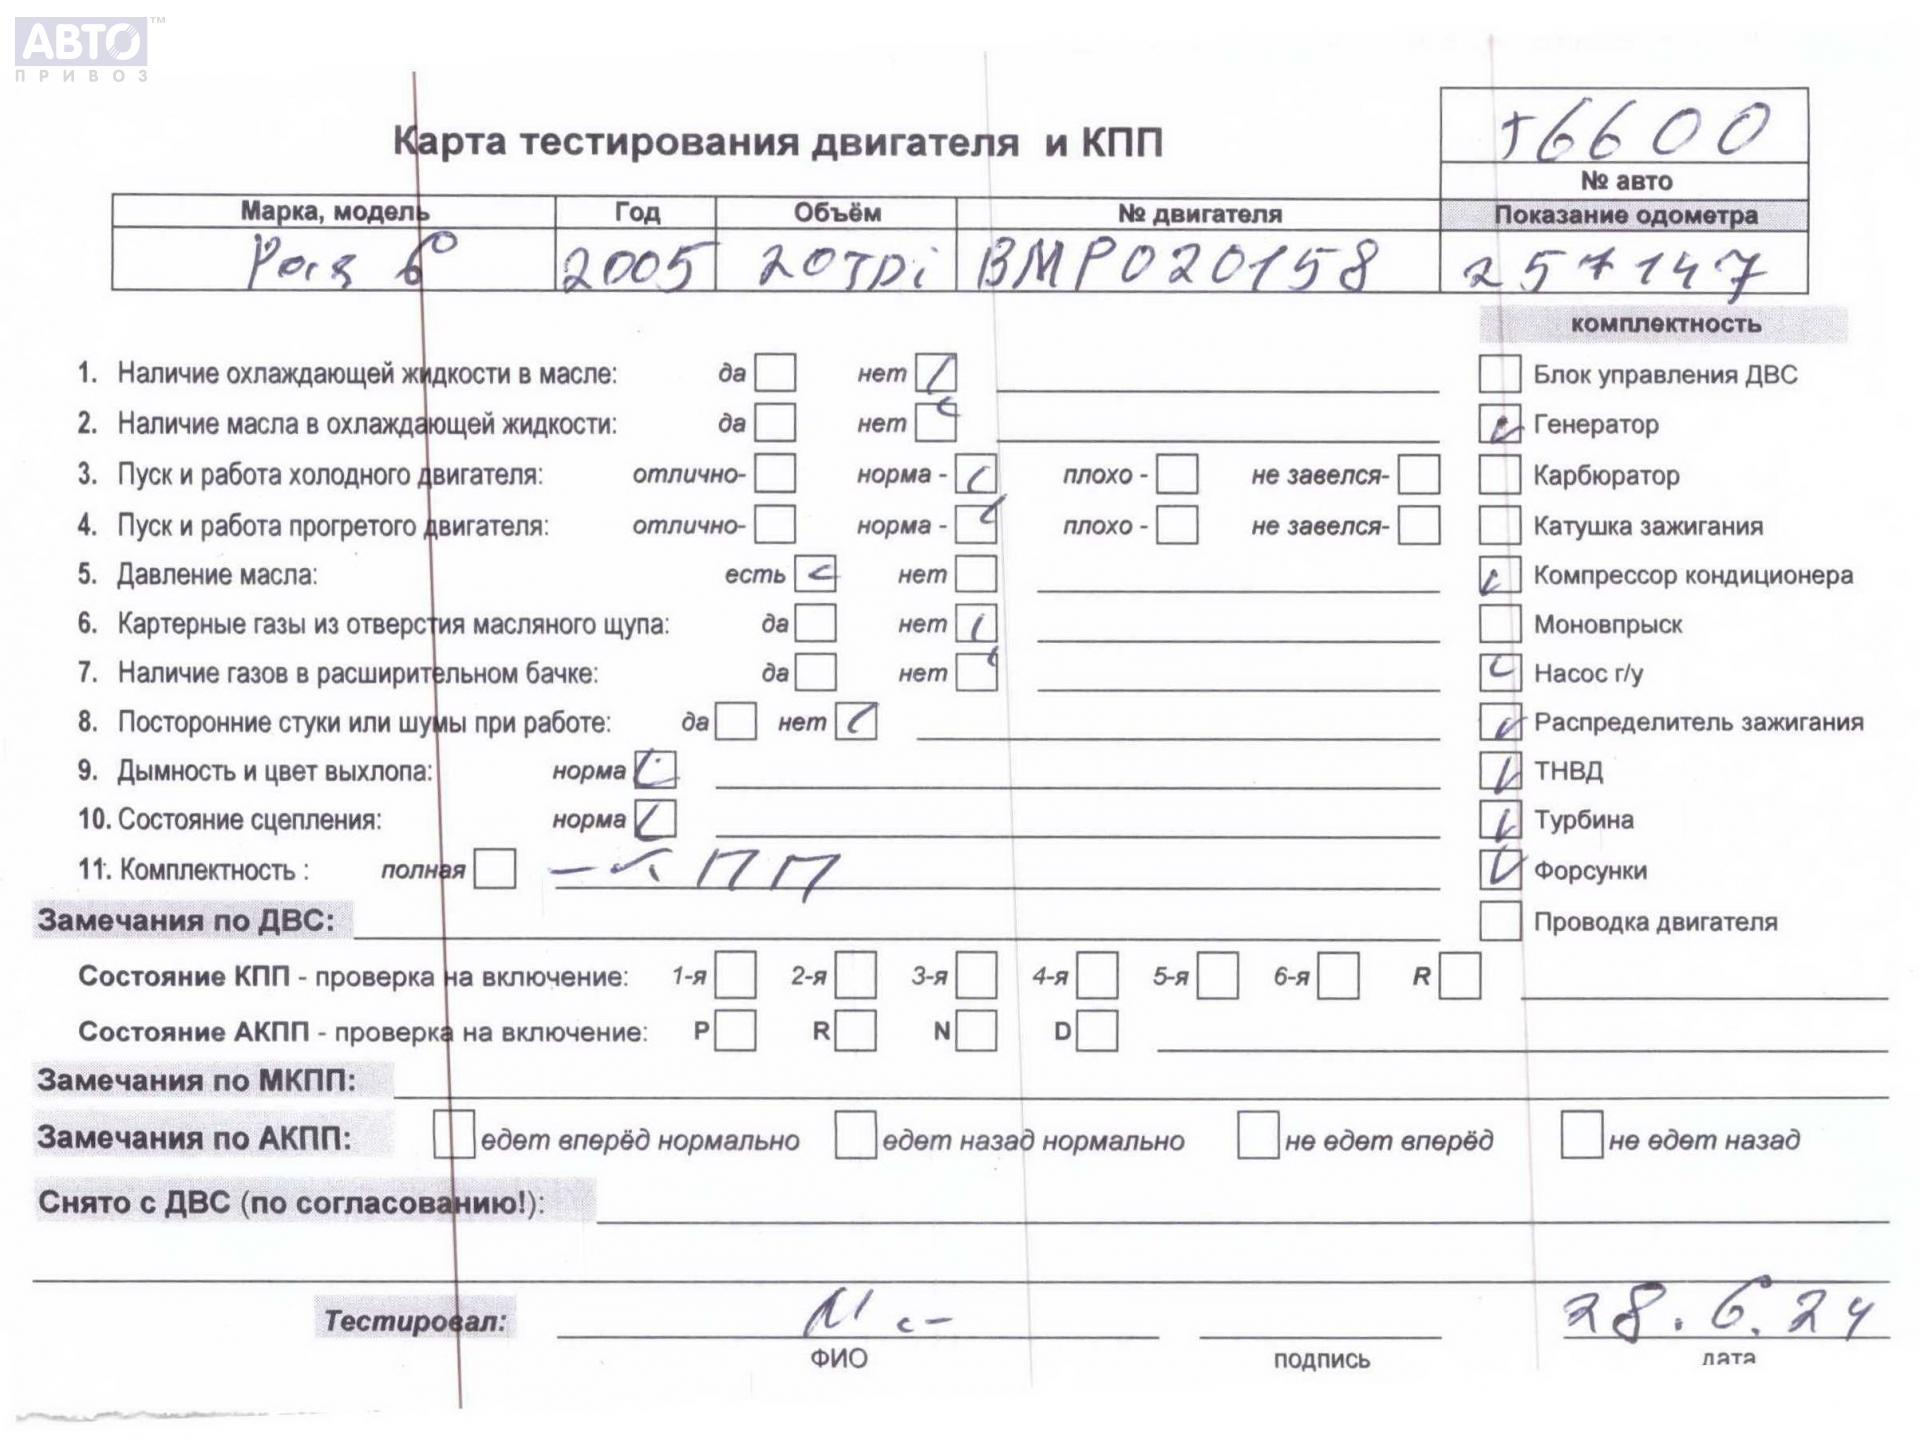 АВТО™
ПРИВОЗ
Карта тестирования двигателя и КПП
№ авто
Марка, модель Год Объём № двигателя Показание одометра
2005 2.0TDi BMP020158 257147
комплектность
1. Наличие охлаждающей жидкости в масле: да нет Блок управления ДВС
2. Наличие масла в охлаждающей жидкости: да нет Генератор
3. Пуск и работа холодного двигателя: отлично- норма - плохо - не завелся- Карбюратор
4. Пуск и работа прогретого двигателя: отлично- норма - плохо - не завелся- Катушка зажигания
5. Давление масла: есть нет Компрессор кондиционера
6. Картерные газы из отверстия масляного щупа: да нет Моновпрыск
7. Наличие газов в расширительном бачке: да нет Насос г/у
8. Посторонние стуки или шумы при работе: да нет Распределитель зажигания
9. Дымность и цвет выхлопа: норма ТНВД
10. Состояние сцепления: норма Турбина
11. Комплектность : полная - КПП Форсунки
Замечания по ДВС: Проводка двигателя
Состояние КПП - проверка на включение: 1-я 2-я 3-я 4-я 5-я 6-я R
Состояние АКПП - проверка на включение: P R N D
Замечания по МКПП:
Замечания по АКПП: едет вперёд нормально едет назад нормально не едет вперёд не едет назад
Снято с ДВС (по согласованию!):
Тестировал: 28.6.24
ФИО подпись дата